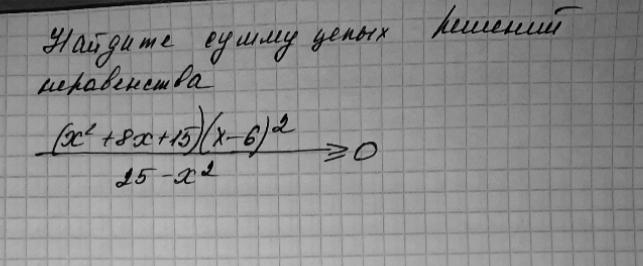 Найдите сумму целых решений
неравенства
(x² + 8x + 15)(x - 6)²
≥ 0
25 - x²